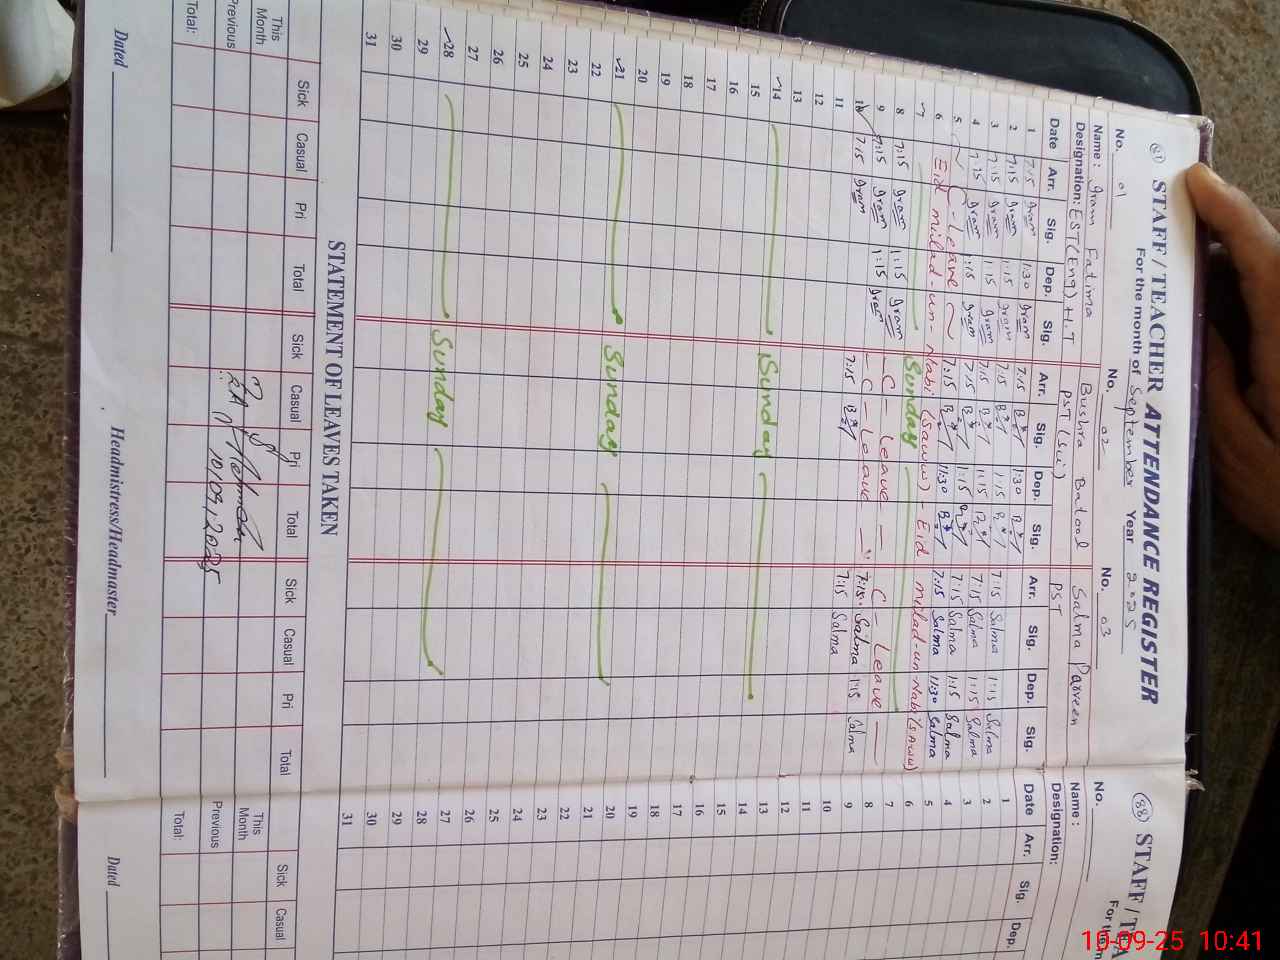 STAFF / TEACHER ATTENDANCE REGISTER
For the month of September Year 2025
No. 01 No. 02 No. 03
Name: Iram Fatima Bushra Batool Salma Parveen
Designation: EST (Eng) H.T PST PST
Date Arr. Sig. Dep. Sig. Arr. Sig. Dep. Sig. Arr. Sig. Dep. Sig.
1 7:15 Iram 1:30 Iram 7:15 1:30 7:15 Salma 1:15 Salma
2 7:15 Iram 1:15 Iram 7:15 1:15 7:15 Salma 1:15 Salma
3 7:15 Iram 1:15 Iram 7:15 1:15 7:15 Salma 1:15 Salma
4 7:15 Iram 1:15 Iram 7:15 1:15 7:15 Salma 11:30 Salma
5 C - Leave 7:15 11:30
6 Eid milad-un-Nabi (SAWW) - Eid milad-un-Nabi (SAWW)
7 Sunday
8 7:15 Iram 1:15 Iram C - Leave C - Leave
9 7:15 Iram 1:15 Iram C - Leave 7:15 Salma 1:15 Salma
10 7:15 Iram 7:15 7:15 Salma
11
12
13
14 Sunday
15
16
17
18
19
20
21 Sunday
22
23
24
25
26
27
28 Sunday
29
30
31
STATEMENT OF LEAVES TAKEN
Sick Casual Pri Total Sick Casual Pri Total Sick Casual Pri Total
This Month
Previous
Total:
10/09/2025
Dated Headmistress/Headmaster
88 STAFF / TEA
For the m
No.
Name:
Designation:
Date Arr. Sig. Dep.
1
2
3
4
5
6
7
8
9
10
11
12
13
14
15
16
17
18
19
20
21
22
23
24
25
26
27
28
29
30
31
Sick Casual
This Month
Previous
Total:
Dated
10-09-25 10:41